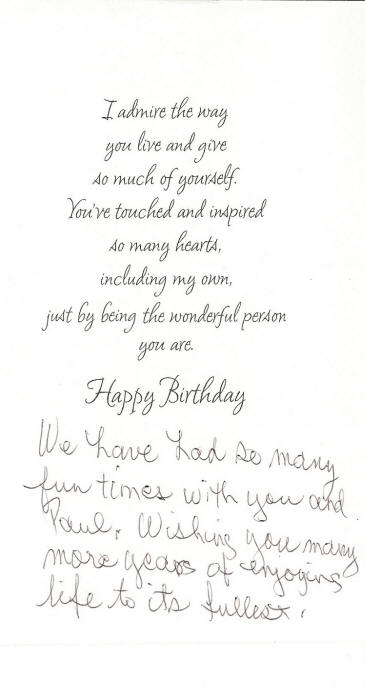 I admire the way
you live and give
so much of yourself.
You've touched and inspired
so many hearts,
including my own,
just by being the wonderful person
you are.
Happy Birthday
We have had so many
fun times with you and
Paul. Wishing you many
more years of enjoying
life to its fullest.